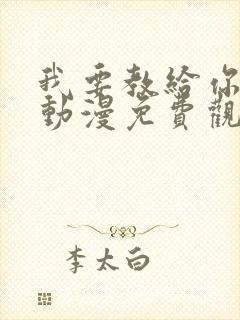 我要教給你
動漫免費觀
李太白